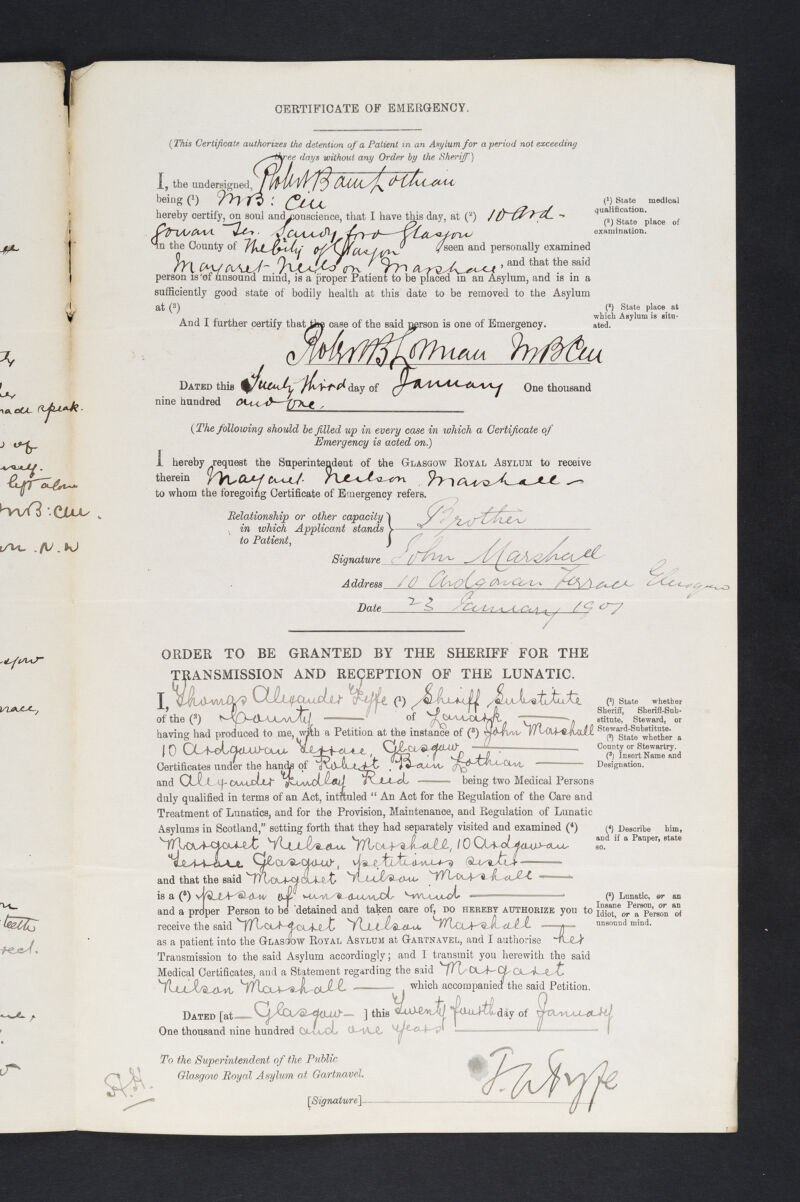 CERTIFICATE OF EMERGENCY.
(This Certificate authorizes the detention of a Patient in an Asylum for a period not exceeding
three days without any Order by the Sheriff)
I, the undersigned, Robert Bain Lothian
being (¹) M.B: C.M
(¹) State medical
qualification.
hereby certify, on soul and conscience, that I have this day, at (²) 10 Ard-
(²) State place of
examination.
gowan Ter. Sandyford Glasgow
in the County of The City of Glasgow seen and personally examined
Margaret Neilson Marshall, and that the said
person is of unsound mind, is a proper Patient to be placed in an Asylum, and is in a
sufficiently good state of bodily health at this date to be removed to the Asylum
at (³)
(³) State place at
which Asylum is situ-
ated.
And I further certify that the case of the said person is one of Emergency.
Robert B Lothian M B C M
DATED this Twenty third day of January One thousand
nine hundred and one.
(The following should be filled up in every case in which a Certificate of
Emergency is acted on.)
I hereby request the Superintendent of the GLASGOW ROYAL ASYLUM to receive
therein Margaret Neilson Marshall
to whom the foregoing Certificate of Emergency refers.
Relationship or other capacity
in which Applicant stands
to Patient,
Brother
Signature John Marshall
Address 10 Ardgowan Terrace Glasgow
Date 23 January 1901
ORDER TO BE GRANTED BY THE SHERIFF FOR THE
TRANSMISSION AND RECEPTION OF THE LUNATIC.
I, Thomas Alexander Fyfe (¹) Sheriff Substitute
(¹) State whether
Sheriff, Sheriff-Sub-
stitute, Steward, or
Steward-Substitute.
of the (²) County of Lanark
(²) State whether a
County or Stewartry.
having had produced to me, with a Petition at the instance of (³) John Marshall
(³) Insert Name and
Designation.
10 Ardgowan Terrace, Glasgow
Certificates under the hands of Robert Bain Lothian
and Alexander Findlay Reid being two Medical Persons
duly qualified in terms of an Act, intituled "An Act for the Regulation of the Care and
Treatment of Lunatics, and for the Provision, Maintenance, and Regulation of Lunatic
Asylums in Scotland," setting forth that they had separately visited and examined (⁴)
(⁴) Describe him,
and if a Pauper, state
so.
Margaret Neilson Marshall, 10 Ardgowan
Terrace Glasgow, petitioners sister
and that the said Margaret Neilson Marshall
is a (⁵) person of unsound mind
(⁵) Lunatic, or an
Insane Person, or an
Idiot, or a Person of
unsound mind.
and a proper Person to be detained and taken care of, DO HEREBY AUTHORIZE you to
receive the said Margaret Neilson Marshall
as a patient into the GLASGOW ROYAL ASYLUM AT GARTNAVEL, and I authorise her
Transmission to the said Asylum accordingly; and I transmit you herewith the said
Medical Certificates, and a Statement regarding the said Margaret
Neilson Marshall, which accompanied the said Petition.
DATED [at Glasgow ] this Twenty fourth day of January
One thousand nine hundred and one years
To the Superintendent of the Public
Glasgow Royal Asylum at Gartnavel.
[Signature] T. A. Fyfe
made speak.
of
left alone
M.B: C.M.
N.W
teeth